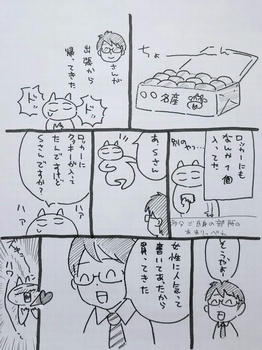 ちょ
名産
さんが
出張から
帰ってきた
ドッ
ドッ
ロッカーにも
なんか1個
入ってた
別のやつ…
あ、Sさん
ロッカーに
クッキーが入って
たんですけど
Sさんですか?
ハァ
ハァ
そうだよ!
女性に人気って
書いてあったから
買ってきた